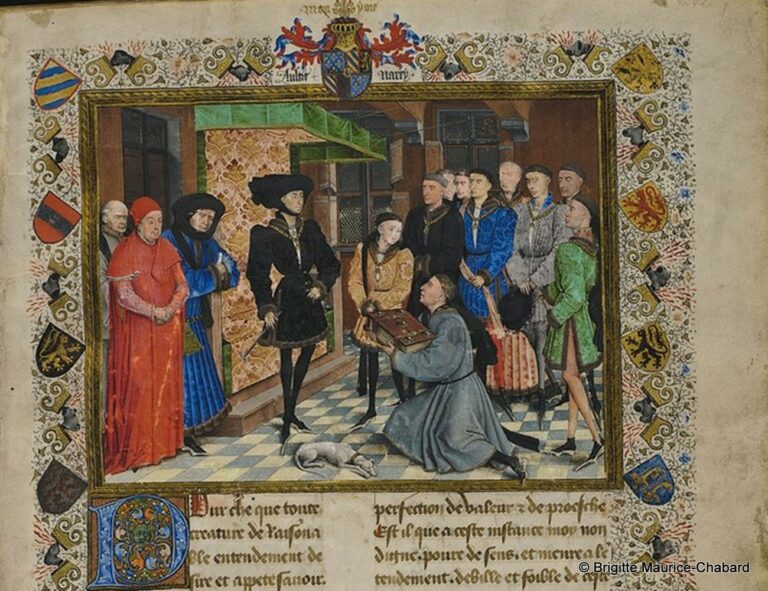 Aultre Narey
POur che que toute
creature de Raisona
ble entendement de
sire et appete sauoir.
perfection de valeur & de proesche
Est il que a ceste instance moy non
digne. poure de sens. et menre
tendement. debille et foible de ceste
© Brigitte Maurice-Chabard